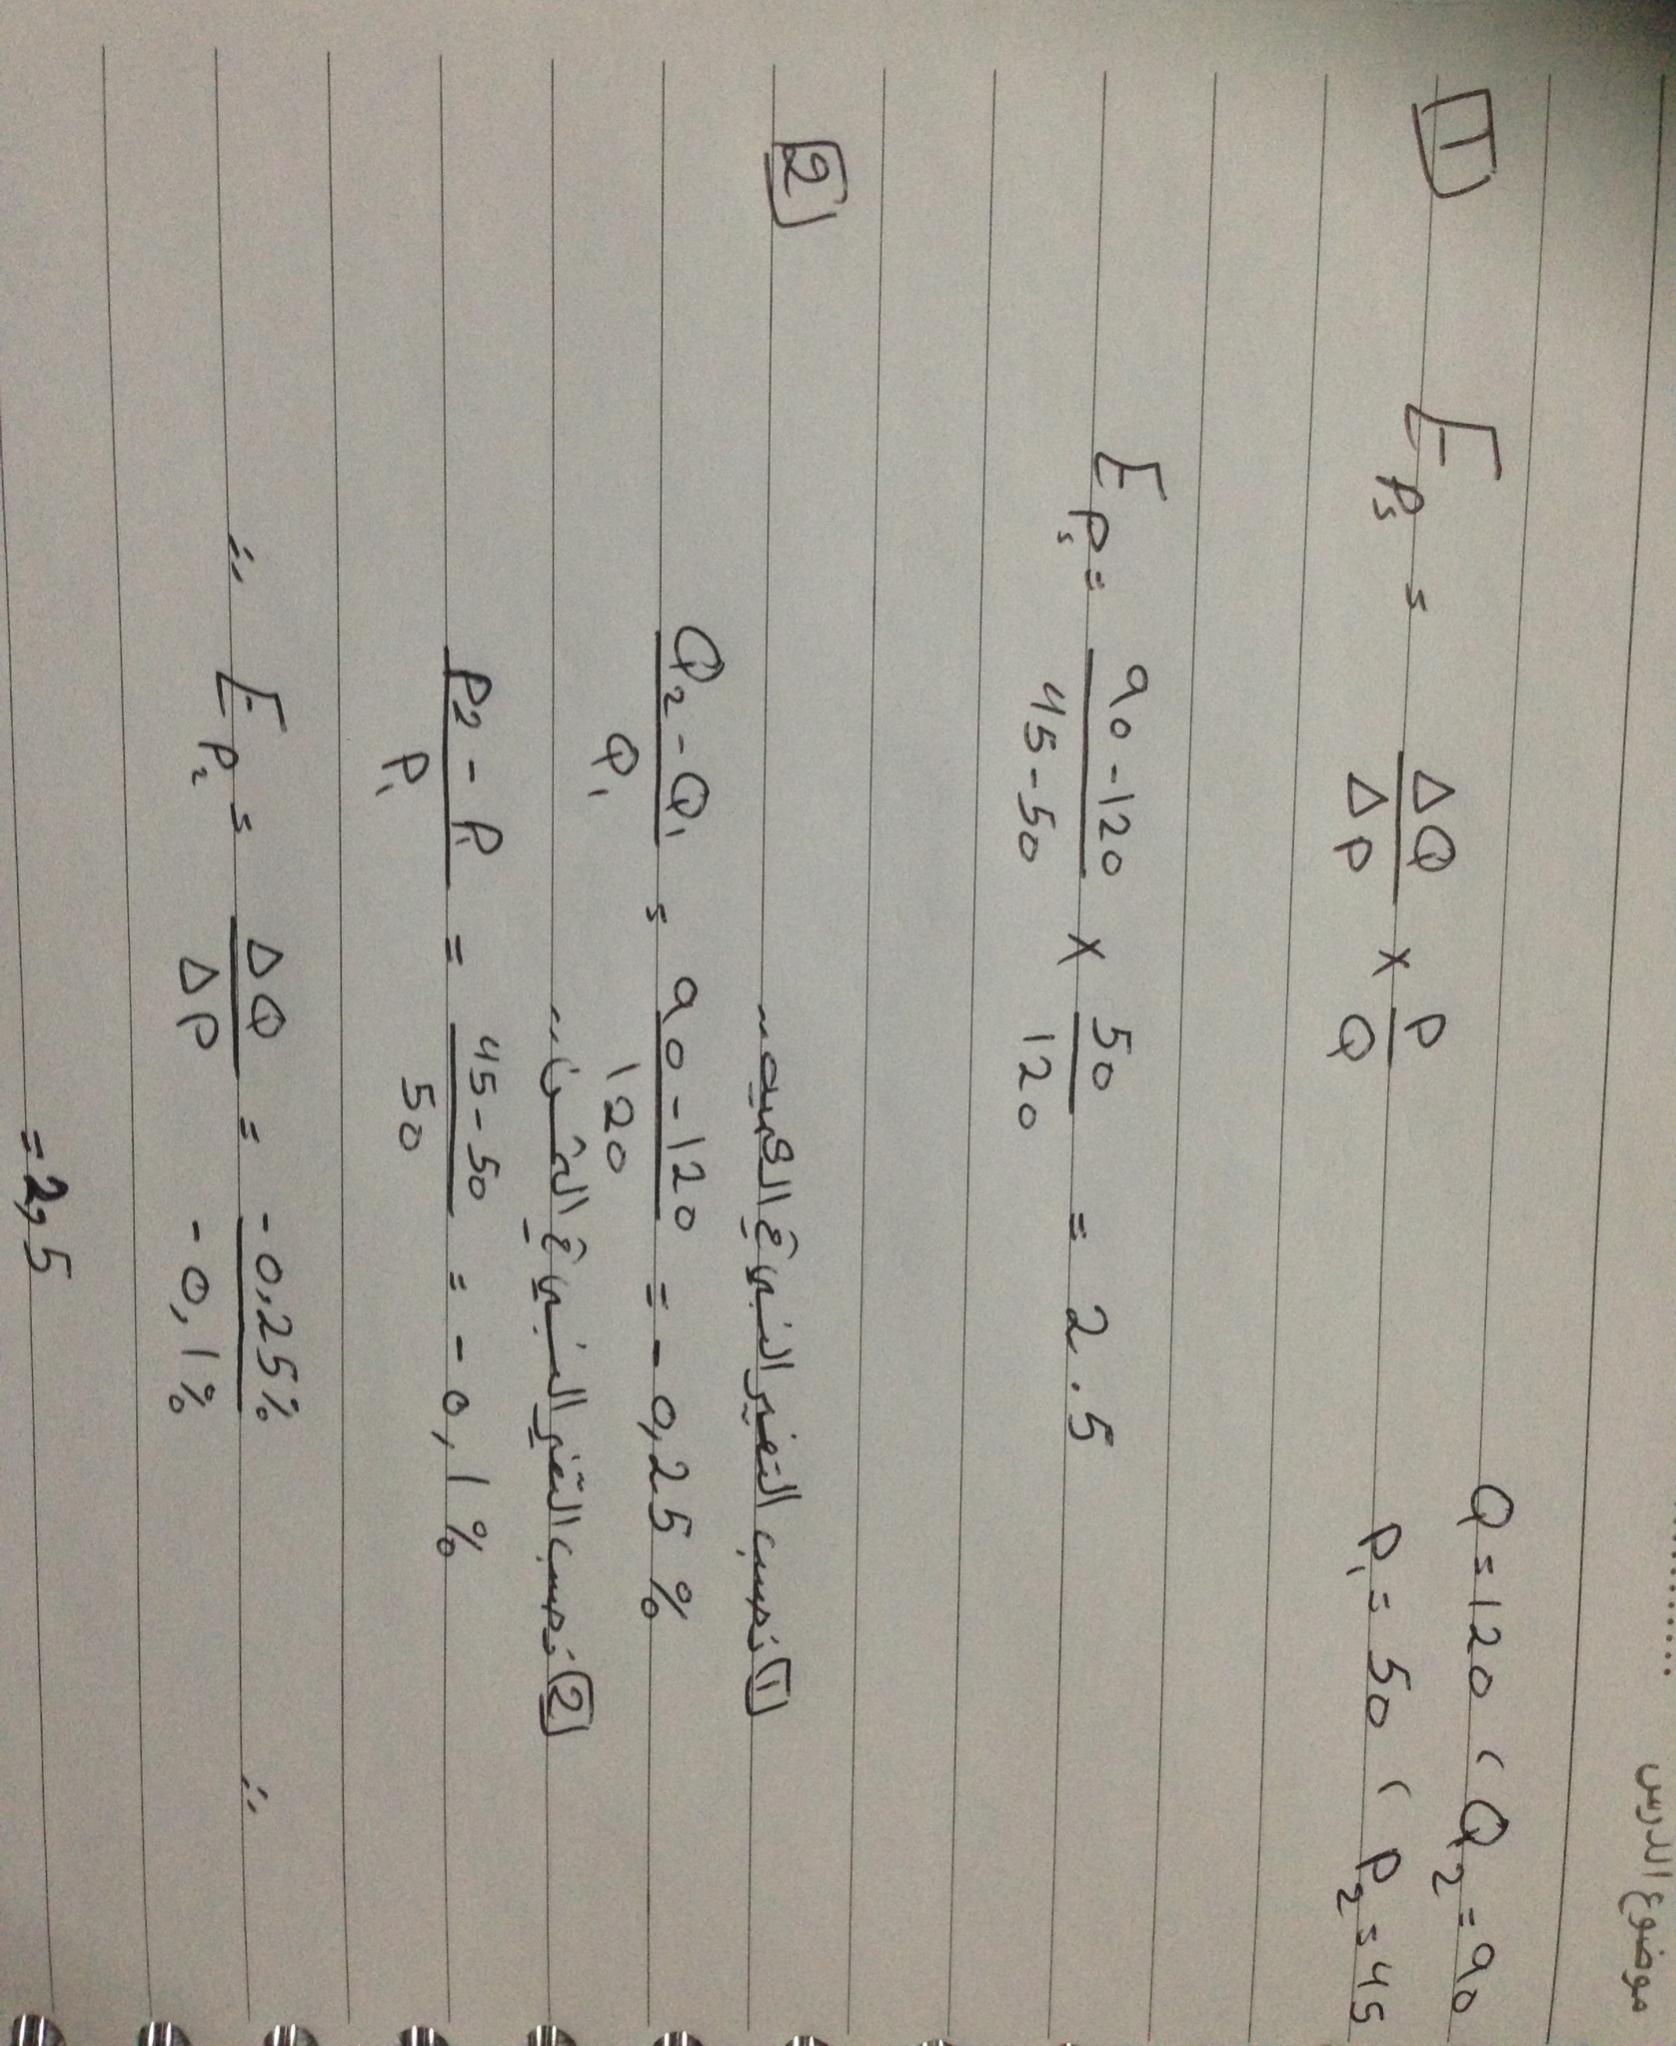 موضوع الدرس ..........
1 Eps = ΔQ/ΔP × P/Q Q=120 ( Q2=90
P1=50 ( P2=45
Eps = 90-120/45-50 × 50/120 = 2.5
2 1 نحسب التغير النسبي في الكميه
Q2-Q1/Q1 = 90-120/120 = -0,25%
2 نحسب التغير النسبي في الثمن
P2-P1/P1 = 45-50/50 = -0,1%
∴ Eps = ΔQ/ΔP = -0,25%/-0,1% ∴
= 2,5